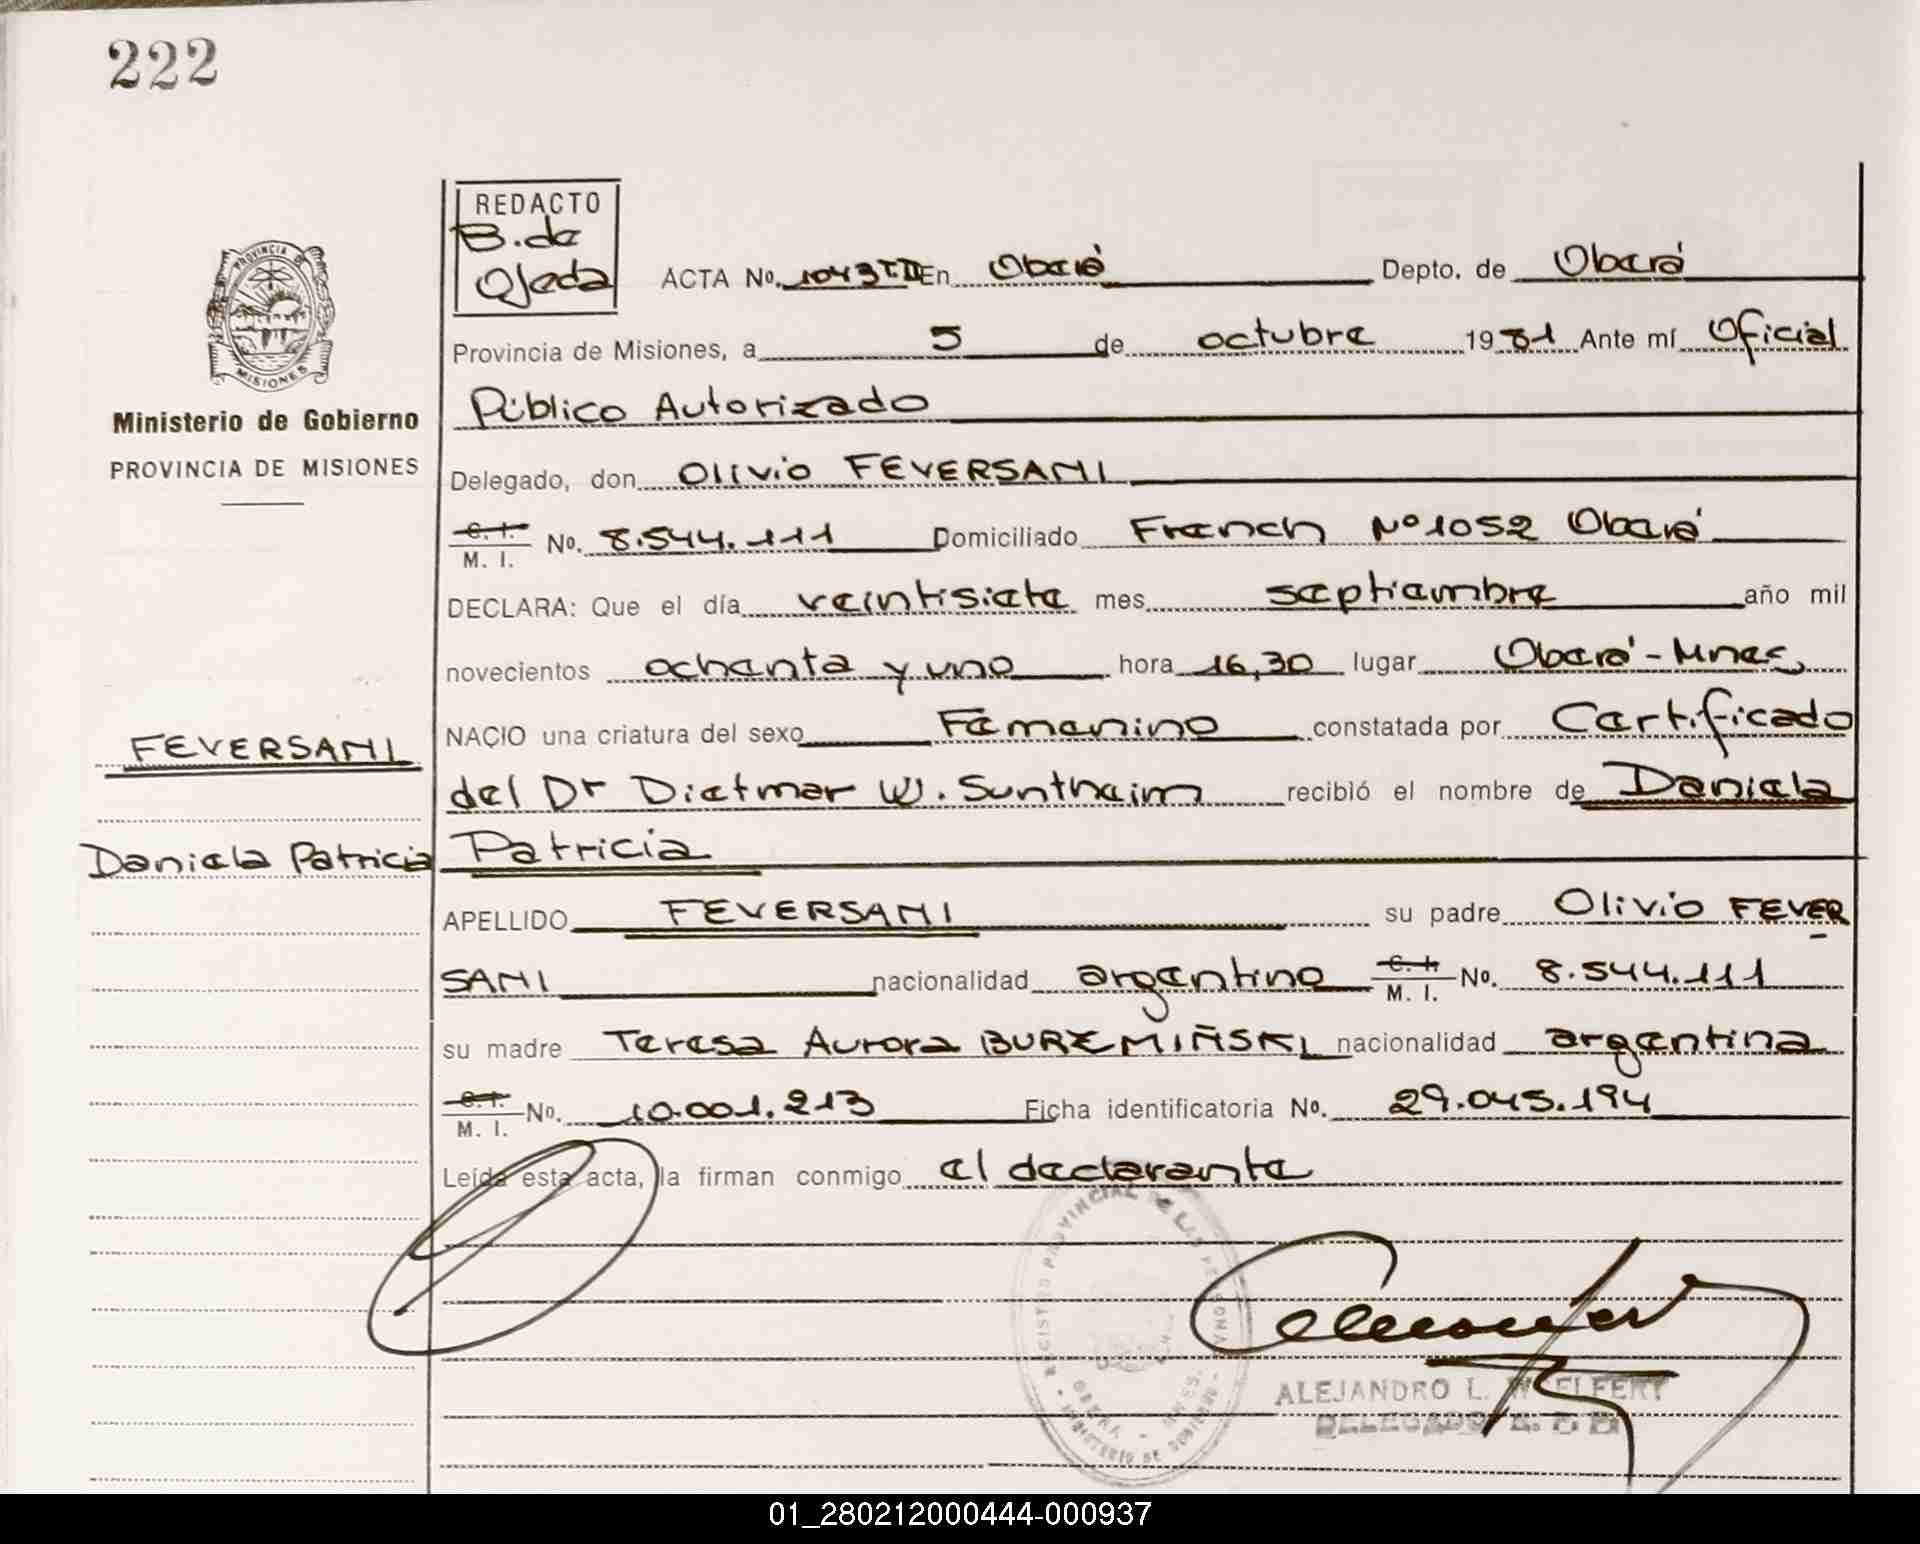 222
REDACTO
B. de
Ojeda
ACTA No. 1043 T II En Oberá Depto. de Oberá
Provincia de Misiones, a 5 de octubre 1981 Ante mí Oficial
Público Autorizado
Delegado, don Olivio FEVERSANI
C. I.
M. I. No. 8.544.111 Domiciliado French Nº 1052 Oberá
DECLARA: Que el día veintisiete mes septiembre año mil
novecientos ochenta y uno hora 16,30 lugar Oberá - Mnes.
NACIO una criatura del sexo Femenino constatada por Certificado
del Dr Dietmar W. Suntheim recibió el nombre de Daniela
Patricia
APELLIDO FEVERSANI su padre Olivio FEVER
SANI nacionalidad argentino C. I. M. I. No. 8.544.111
su madre Teresa Aurora BUREMIÑSKI nacionalidad argentina
C. I.
M. I. No. 10.001.213 Ficha identificatoria No. 29.045.194
Leída esta acta, la firman conmigo el declarante
PROVINCIA DE
MISIONES
Ministerio de Gobierno
PROVINCIA DE MISIONES
FEVERSANI
Daniela Patricia
REGISTRO PROVINCIAL DE LAS PERSONAS
OBERA - MNES.
MINISTERIO DE GOBIERNO
ALEJANDRO L. WELFERT
DELEGADO
01_280212000444-000937